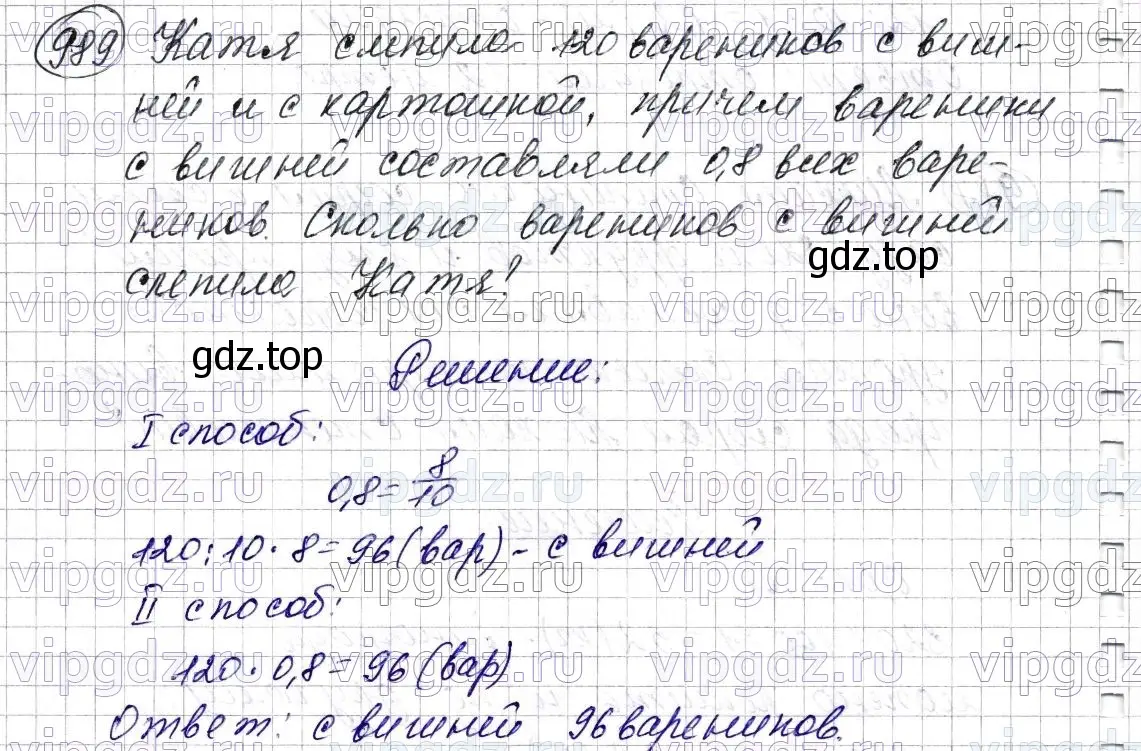 989 Катя слепила 120 вареников с виш-
ней и с картошкой, причем вареники
с вишней составляли 0,8 всех варе-
ников. Сколько вареников с вишней
слепила Катя?
gdz.top
gdz.top
Решение:
I способ:
0,8 = 8/10
120 : 10 · 8 = 96 (вар) - с вишней
II способ:
120 · 0,8 = 96 (вар)
Ответ: с вишней 96 вареников.
vipgdz.ru